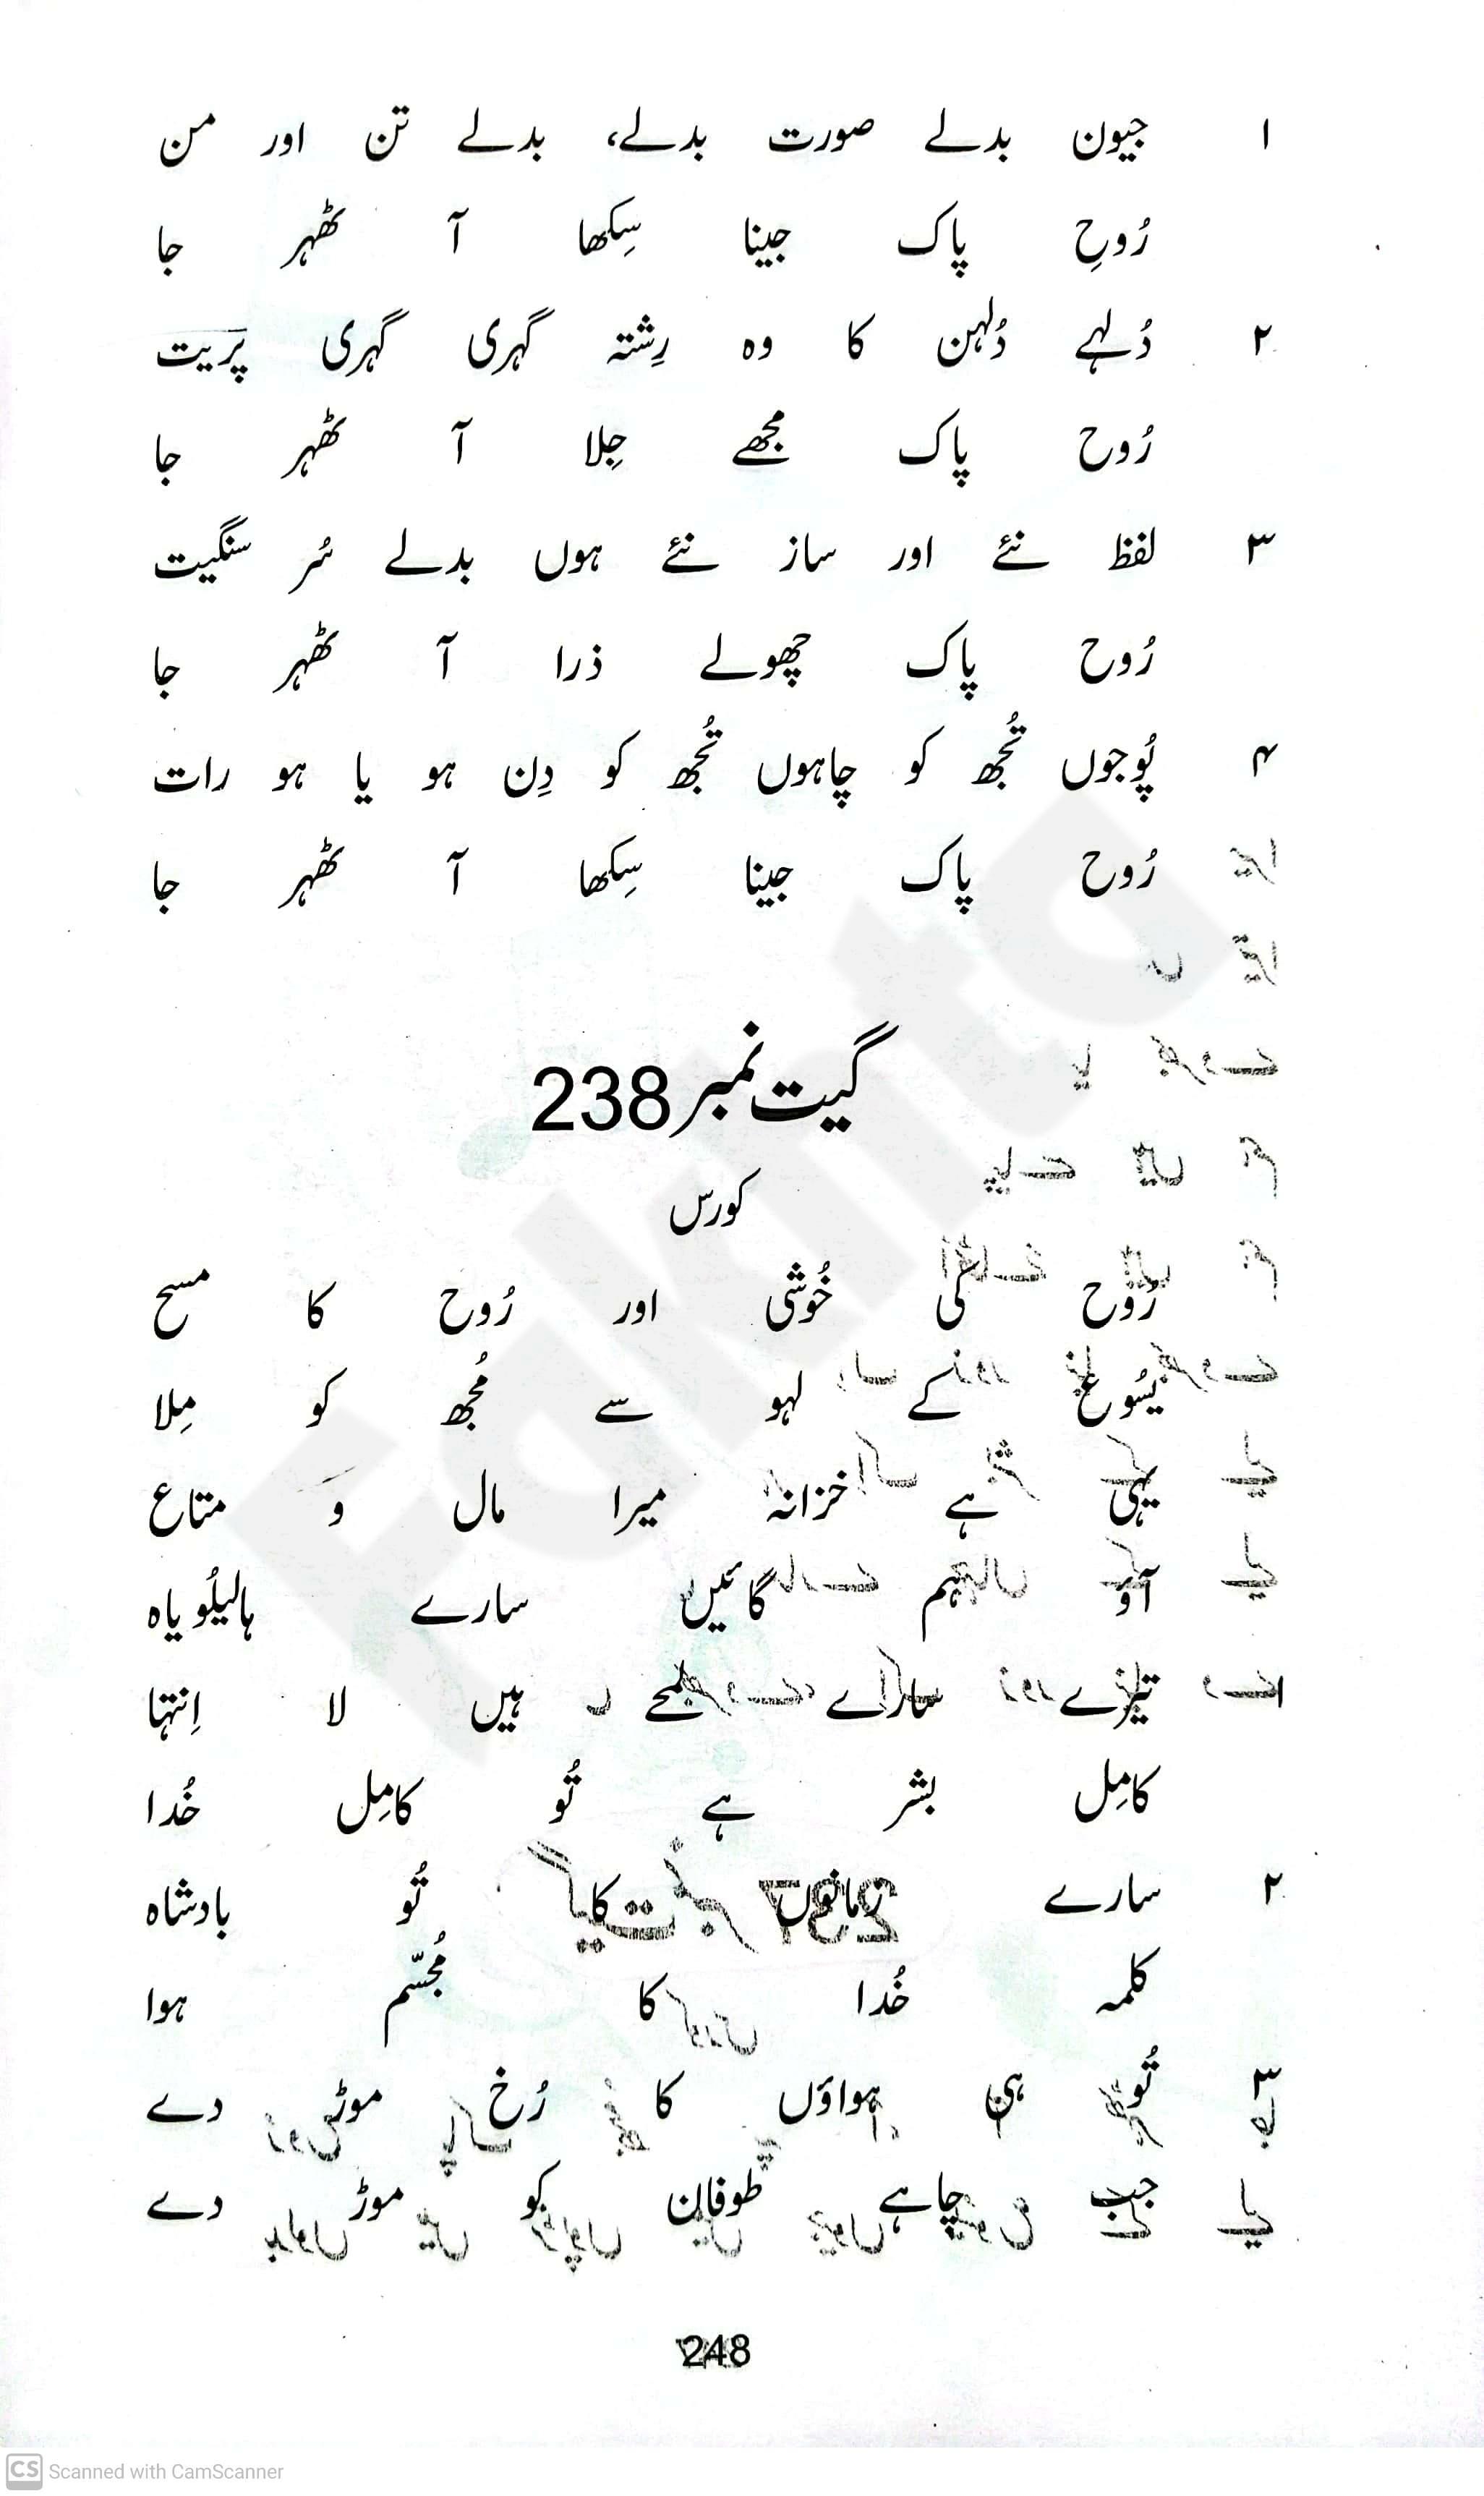 ۱ جیون بدلے صورت بدلے، بدلے تن اور من
رُوحِ پاک جینا سِکھا آ ٹھہر جا
۲ دُلہے دُلہن کا وہ رِشتہ گہری گہری پَریت
رُوح پاک مجھے جِلا آ ٹھہر جا
۳ لفظ نئے اور ساز نئے ہوں بدلے سُر سنگیت
رُوح پاک چھولے ذرا آ ٹھہر جا
۴ پُوجوں تُجھ کو چاہوں تُجھ کو دِن ہو یا ہو رات
رُوح پاک جینا سِکھا آ ٹھہر جا
گیت نمبر 238
کورس
رُوح کی خُوشی اور رُوح کا مسح
یسُوع کے لہو سے مُجھ کو مِلا
یہی ہے خزانہ میرا مال وَ متاع
آؤ ہم گائیں سارے ہالیلُویاہ
تیرے سارے لمحے ہیں لا اِنتہا
کامِل بشر ہے تُو کامِل خُدا
۲ سارے زمانوں کا تُو بادشاہ
کلمہ خُدا کا مُجسّم ہوا
۳ تُو ہی ہواؤں کا رُخ موڑ دے
جب چاہے طوفان کو موڑ دے
248
Fakhta
CS Scanned with CamScanner